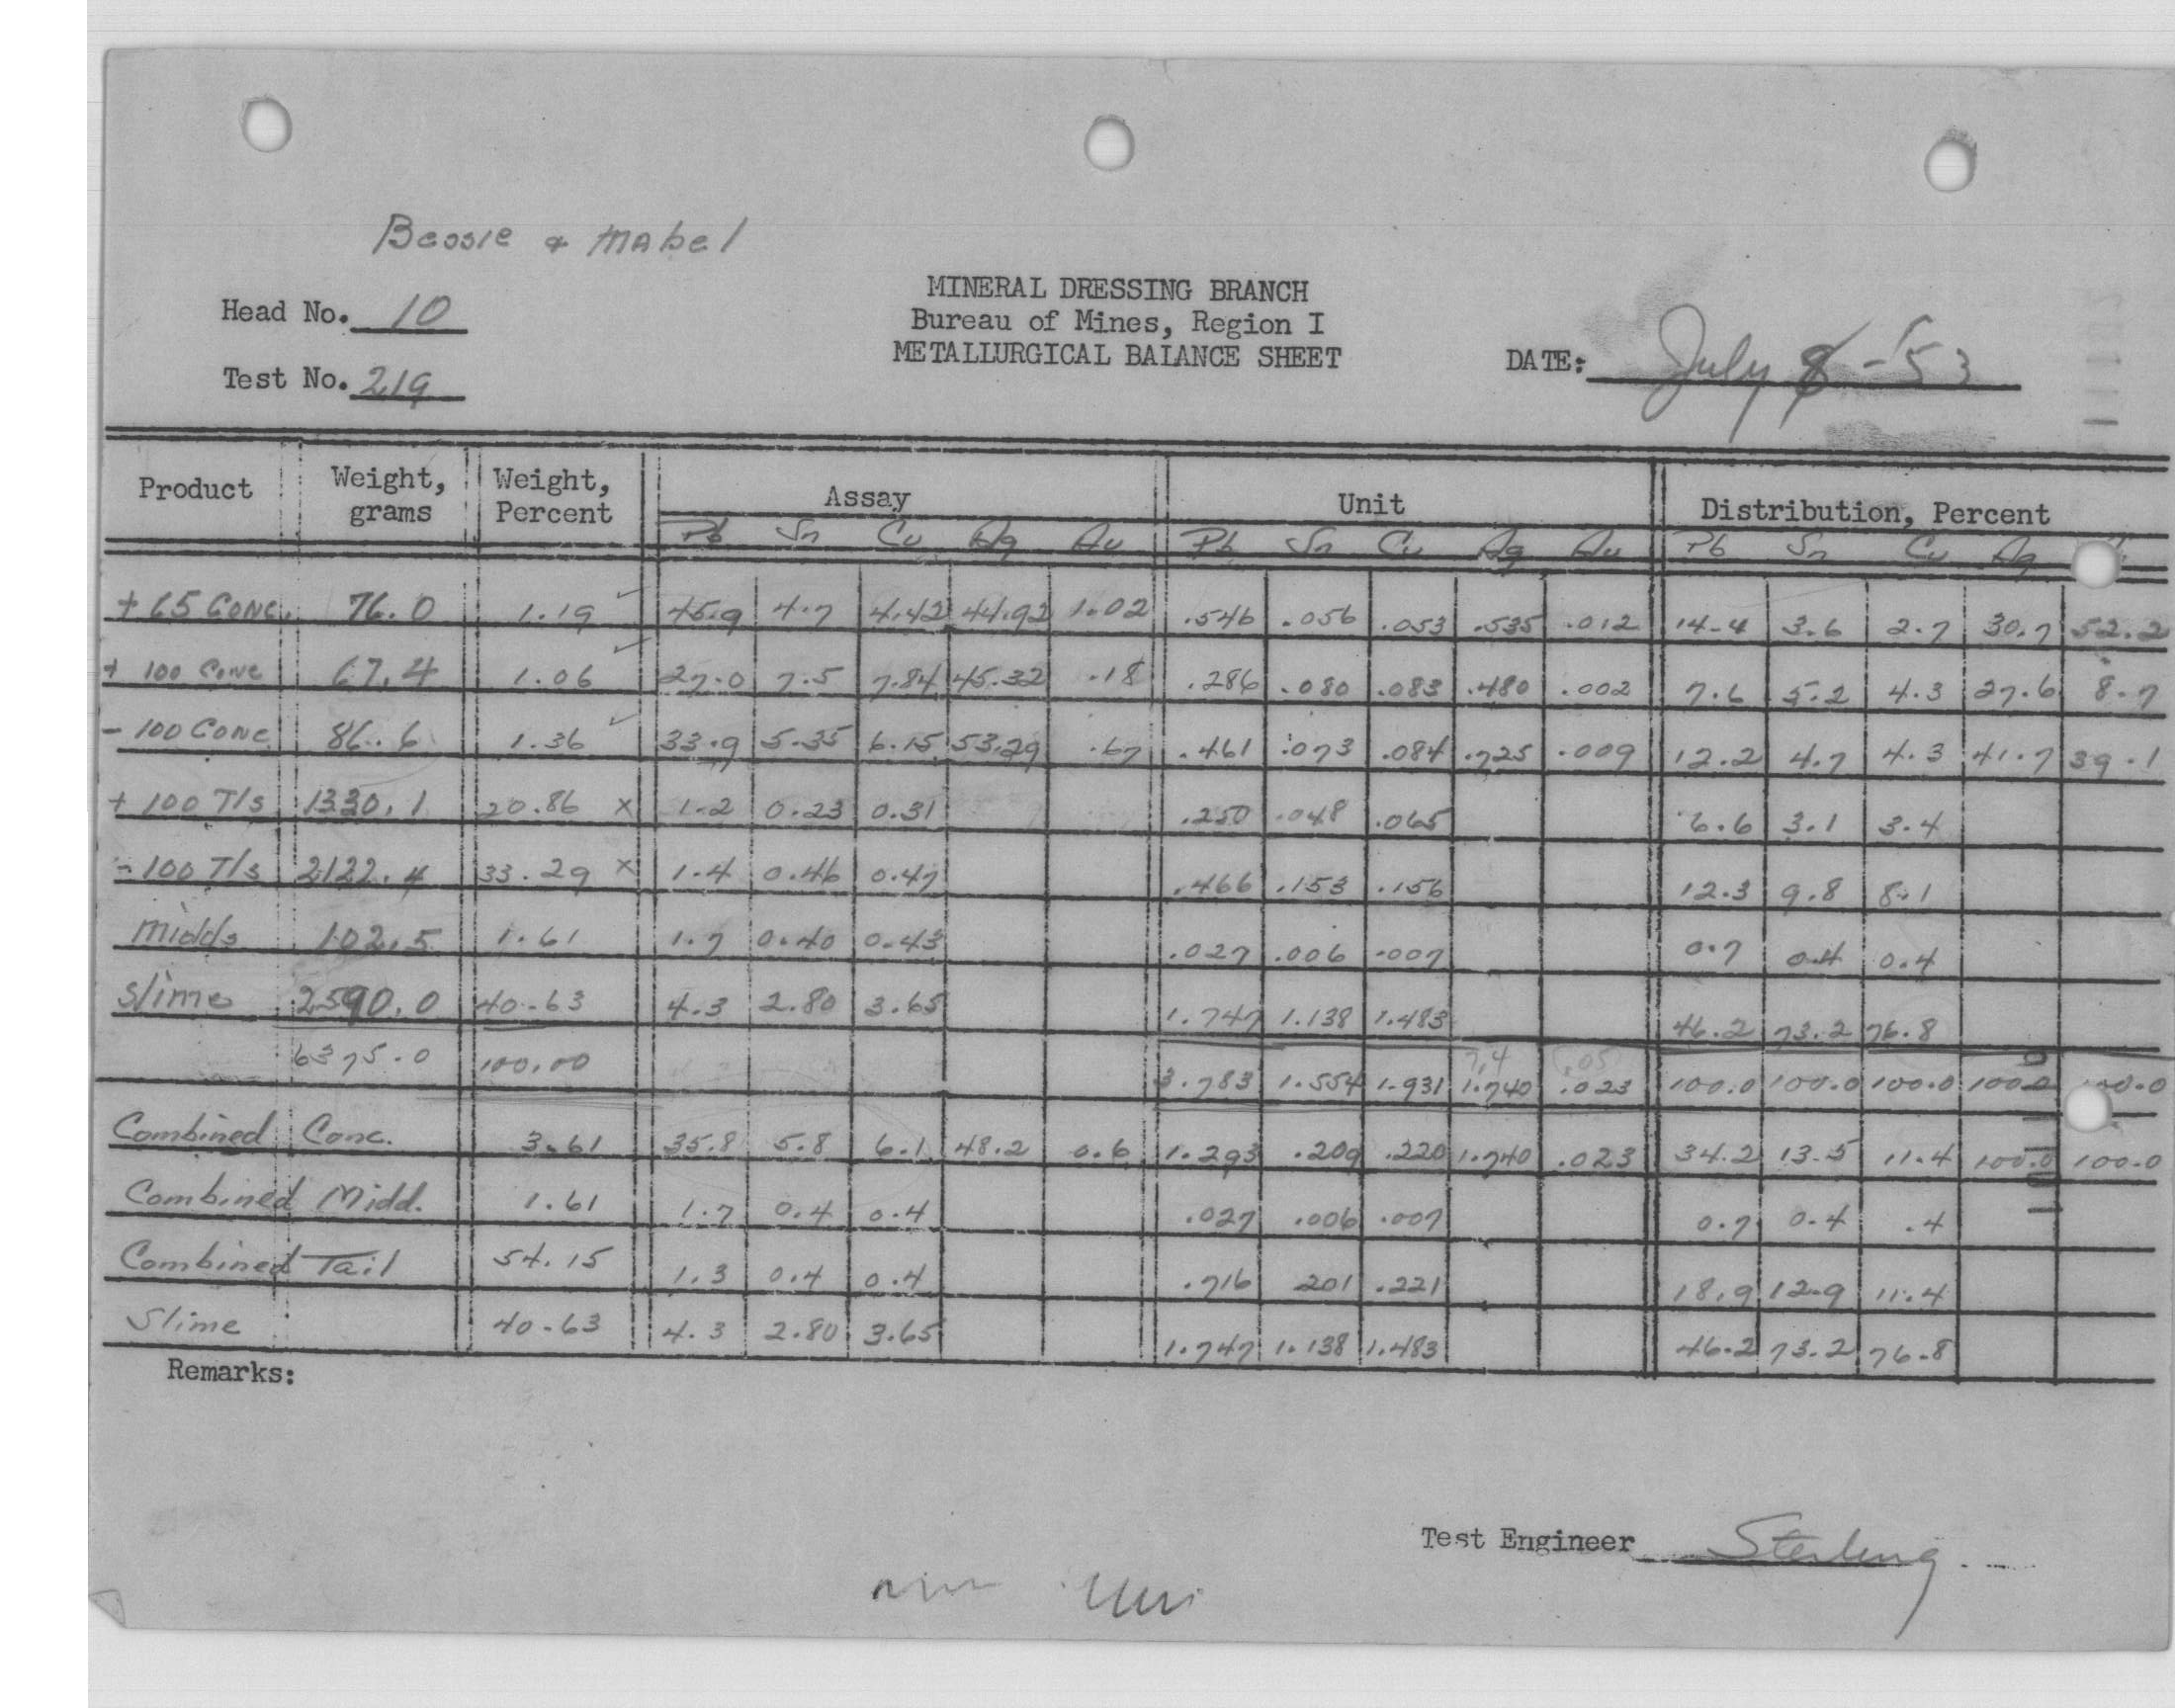 Bessie & Mabel
MINERAL DRESSING BRANCH
Head No. 10
Bureau of Mines, Region I
METALLURGICAL BALANCE SHEET
DATE: July 8-53
Test No. 219
Product Weight, grams Weight, Percent Assay Unit Distribution, Percent
Pb Sn Cu Ag Au Pb Sn Cu Ag Au Pb Sn Cu Ag
+ 65 Conc. 76.0 1.19 ✓ 45.9 4.7 4.42 44.92 1.02 .546 .056 .053 .535 .012 14.4 3.6 2.7 30.7 52.2
+ 100 Conc 67.4 1.06 ✓ 27.0 7.5 7.84 45.32 .18 .286 .080 .083 .480 .002 7.6 5.2 4.3 27.6 8.7
- 100 Conc 86.6 1.36 ✓ 33.9 5.35 6.15 53.29 .67 .461 .073 .084 .725 .009 12.2 4.7 4.3 41.7 39.1
+ 100 T/s 1330.1 20.86 x 1.2 0.23 0.31 .250 .048 .065 6.6 3.1 3.4
- 100 T/s 2122.4 33.29 x 1.4 0.46 0.47 .466 .153 .156 12.3 9.8 8.1
midds 102.5 1.61 1.7 0.40 0.43 .027 .006 .007 0.7 0.4 0.4
slime 2590.0 40.63 4.3 2.80 3.65 1.747 1.138 1.483 46.2 73.2 76.8
7.4 .05
6375.0 100.00 3.783 1.554 1.931 1.740 .023 100.0 100.0 100.0 100.0 100.0
Combined Conc. 3.61 35.8 5.8 6.1 48.2 0.6 1.293 .209 .220 1.740 .023 34.2 13.5 11.4 100.0 100.0
Combined Midd. 1.61 1.7 0.4 0.4 .027 .006 .007 0.7 0.4 .4
Combined Tail 54.15 1.3 0.4 0.4 .716 .201 .221 18.9 12.9 11.4
Slime 40.63 4.3 2.80 3.65 1.747 1.138 1.483 46.2 73.2 76.8
Remarks:
Test Engineer Sterling